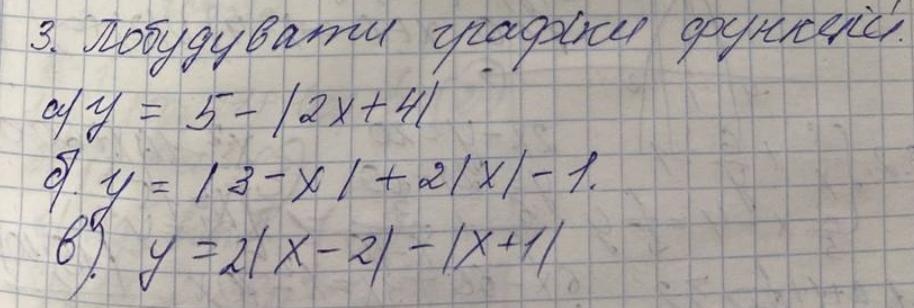 3. Побудувати графіки функцій.
а) y = 5 - |2x+4|
б). y = |3-x| + 2|x| - 1.
в). y = 2|x-2| - |x+1|